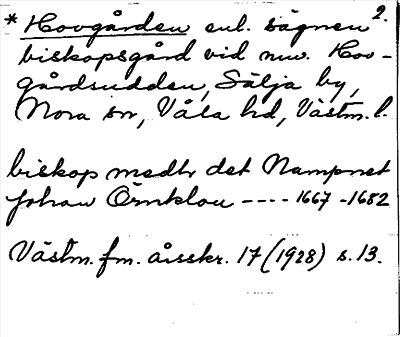 2.
* Hovgården enl. sägnen
biskopsgård vid nuv. Hov-
gårdsudden, Sälja by,
Nora sn, Våla hd, Västm. l.
biskop medtr det Nampnet
Johan Örnklou ---- 1667-1682
Västm. fm. årsskr. 17 (1928) s. 13.